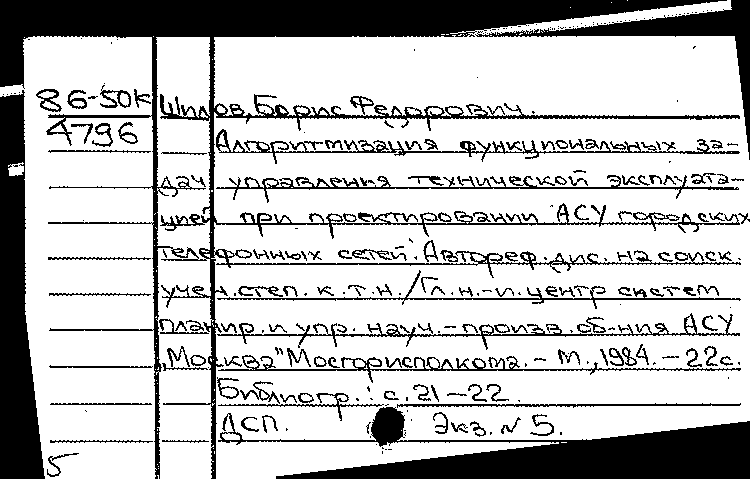 86-50к Шилов, Борис Федорович.
4796 Алгоритмизация функциональных за-
дач управления технической эксплуата-
цией при проектировании АСУ городских
телефонных сетей: Автореф. дис. на соиск.
учен. степ. к. т. н. / Гл. н.-и. центр систем
планир. и упр. науч.-произв. об-ния АСУ
„Москва" Мосгорисполкома. - М., 1984. - 22с.
Библиогр.: с. 21-22.
ДСП. Экз. N 5.
5